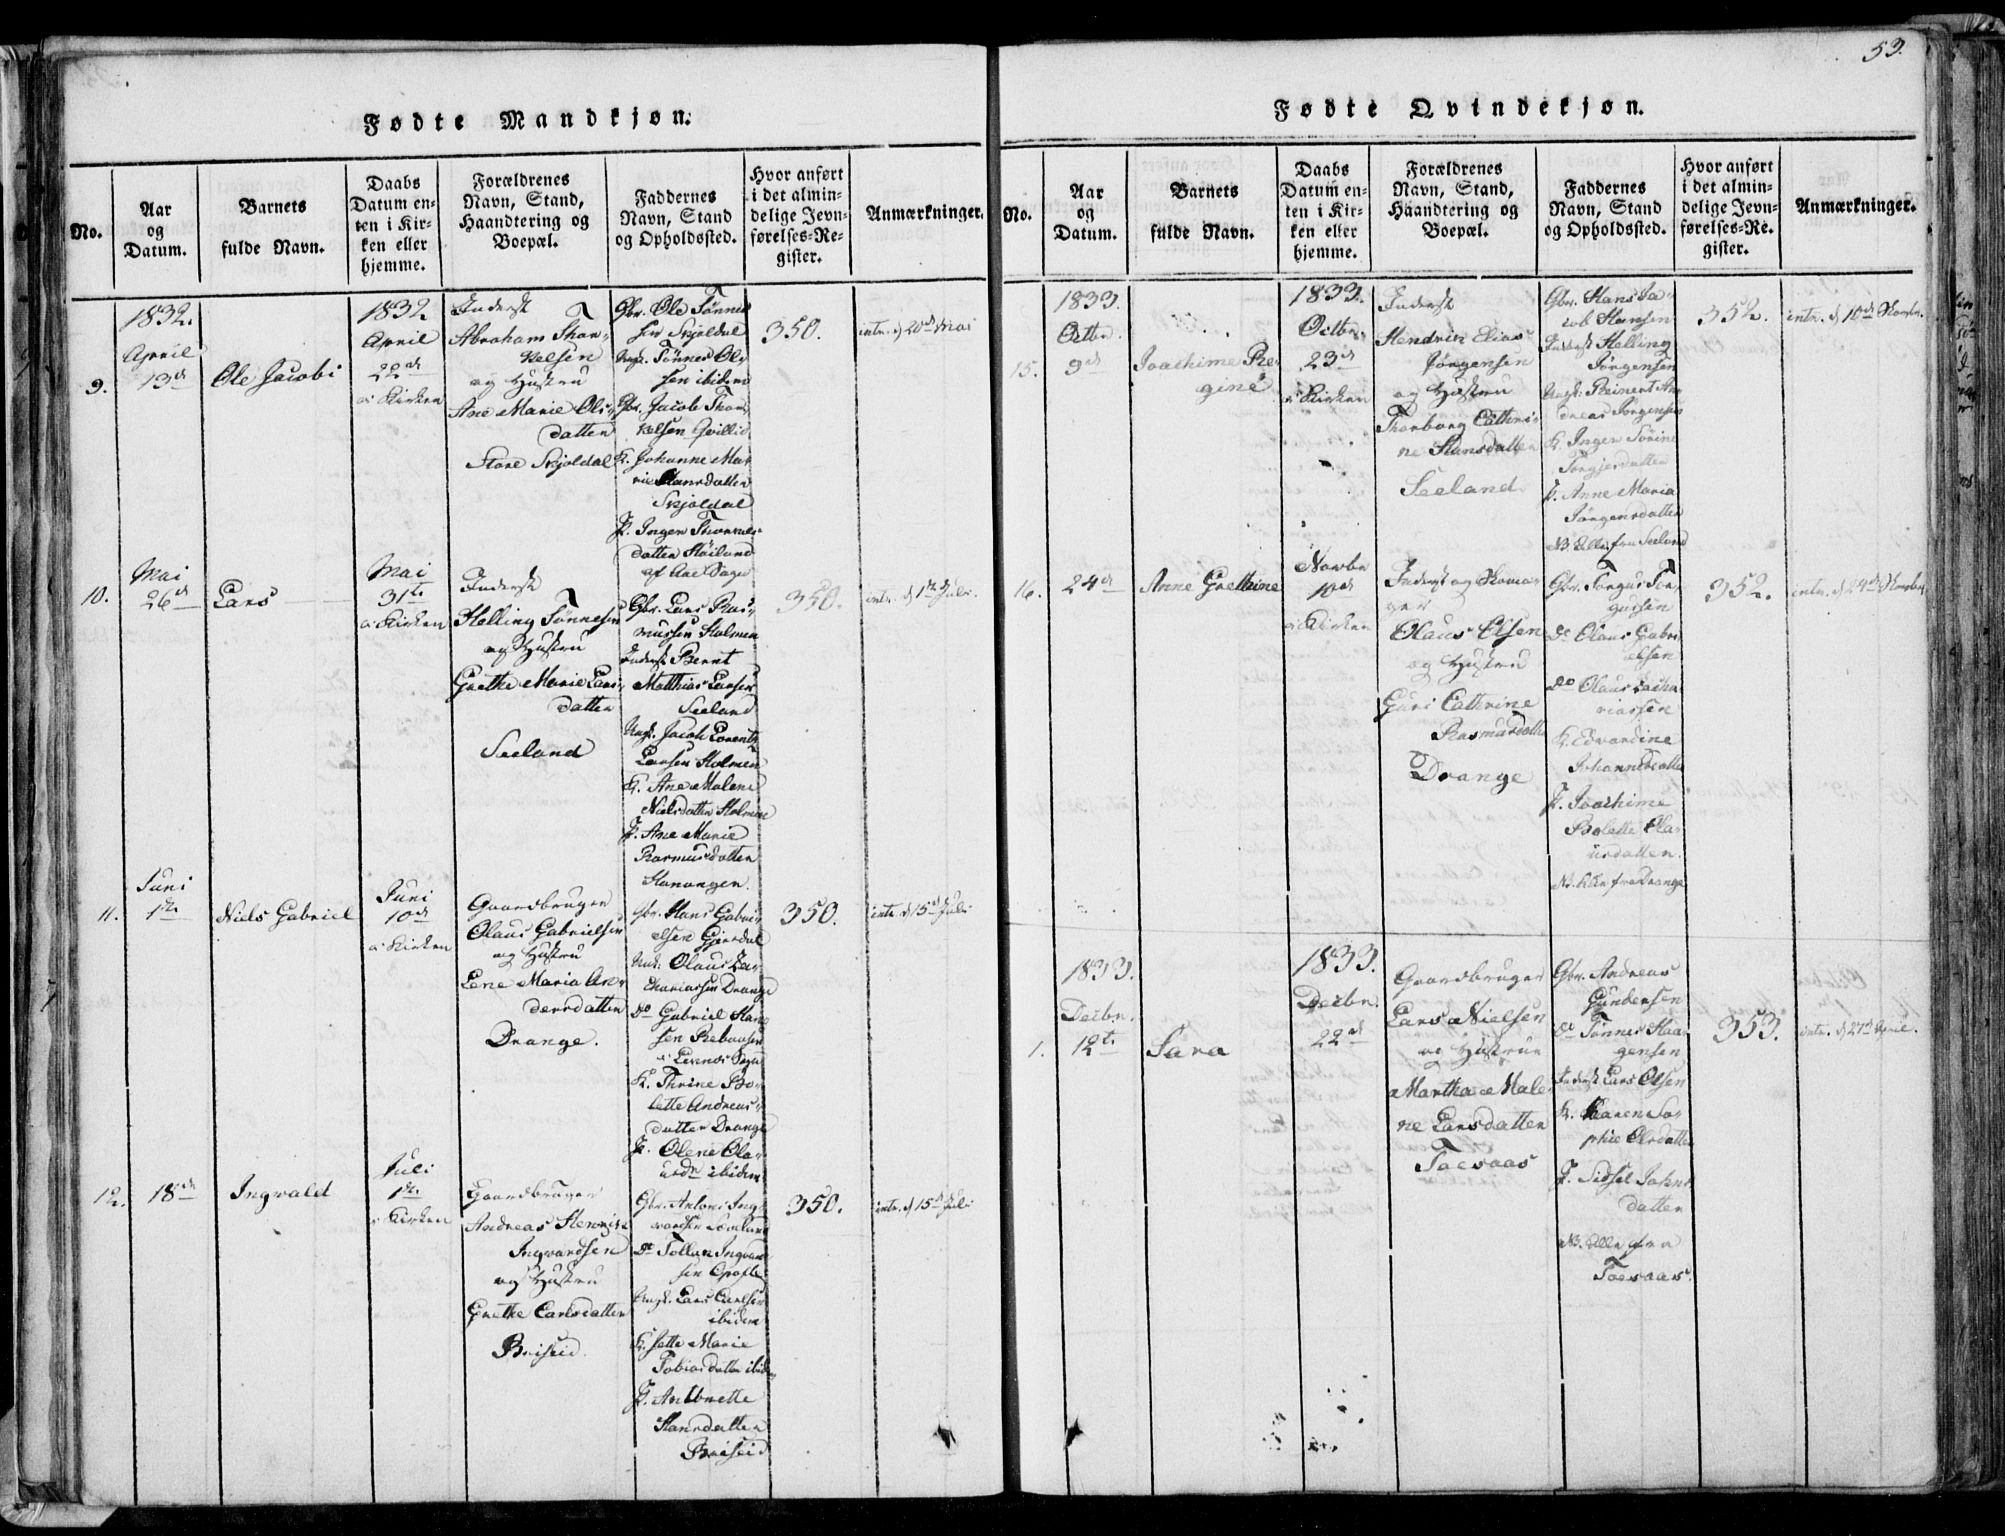 53.
Fødte Mandkjøn.
No.
Aar
og
Datum.
Barnets
fulde Navn.
Daabs
Datum en-
ten i Kir-
ken eller
hjemme.
Forældrenes
Navn, Stand,
Haandtering og
Boepæl.
Faddernes
Navn, Stand
og Opholdssted.
Hvor anført
i det almin-
delige Jevn-
førelses-Re-
gister.
Anmærkninger.
9.
1832.
April
13de
Ole Jacobi
1832
April
22de
i Kirken
Inderst
Abraham Thor-
kelsen
og Hustru
Ane Marie Ols-
datter
Store Skjoldal
Gbr. Ole Tønnes
sen Skjoldal
Ungk. Tønnes Ol-
sen ibidem
Gbr. Jacob Thor-
kelsen Qvillid
K. Johanne Ma-
rie Hansdatter
Skjoldal
P. Inger
datter Høiland
af Aae Sogn
350.
intr. d 20de Mai
10.
Mai
26de
Lars
Mai
31te
i Kirken
Inderst
Helling Tønnesen
og Hustru
Grethe Marie Lars-
datter
Seeland
Gbr. Lars Ras-
mussen Holmen
Inderst Bernt
Matthias Larsen
Seeland
Ungk. Jacob Lorentz
Larsen Holmen
K. Ane Malene
Nielsdatter Holmen
P. Ane Marie
Rasmusdatter
Hanangen.
350.
intr. d 1te Juli.
11.
Juni
1te
Niels Gabriel
Juni
10de
i Kirken
Gaardbruger
Olaus Gabrielsen
og Hustru
Lene Maria An-
dersdatter
Drange.
Gbr. Hans Gabri-
elsen Gjerdal
Ungk. Olaus Za-
chariassen Drange
Do Gabriel Han-
sen
K. Thrine Bo-
lette Andreas-
datter Drange
P. Olene Ola-
usdr ibidem
350.
intr. d 15de Juli
12.
18de
Ingwald
Juli
1te
i Kirken
Gaardbruger
Andreas Henrik
Ingvardsen
og Hustru
Grethe Carlsdatter
Briseid.
Gbr. Antoni Ing-
vardsen
Do Tollan Ingvard-
sen
Ungk. Lars Carlsen
ibidem
K. Jette Marie
Tobiasdatter ibidem
P. Antonette
Hansdatter
Briseid
350.
intr. d 15de Juli
Fødte Qvindekjøn.
No.
Aar
og
Datum.
Barnets
fulde Navn.
Daabs
Datum en-
ten i Kir-
ken eller
hjemme.
Forældrenes
Navn, Stand,
Haandtering og
Boepæl.
Faddernes
Navn, Stand
og Opholdssted.
Hvor anført
i det almin-
delige Jevn-
førelses-Re-
gister.
Anmærkninger.
15.
1833.
Octbr.
9de
Joachime Re-
gine
1833.
Octbr.
23de
i Kirken
Inderst
Hendrik Elias
Jørgensen
og Hustru
Thorborg Cathri-
ne Hansdatter
Seeland
Gbr. Hans Ja-
cob Hansen
Inderst Helling
Jørgensen
Ungk. Reinert An-
dreas Jørgensen
K. Inger Sørine
Torgjersdatter
P. Anne Maria
Jørgensdatter
NB. Alle fra Seeland
352.
intr. d 10de Novbr.
16.
24de
Anne Grethine
Novbr
10de
i Kirken
Inderst og Skoma-
ger
Olaus Olsen
og Hustru
Guri Cathrine
Rasmusdatter
Drange
Gbr. Torgus Tor-
gussen
Do Olaus Gabri-
elsen
Do Olaus Zacha-
riassen
K. Edvardine
Johannesdatter
P. Joachime
Bolette Ola-
usdatter.
NB. Alle fra Drange
352.
intr. d 24de Novbr
1.
1833.
Decbr.
12te
Sara
1833.
Decbr.
22de
Gaardbruger
Lars Nielsen
og Hustrue
Martha Male-
ne Larsdatter
Toesaas
Gbr. Andreas
Gundersen
Do Tønnes Haa-
gensen
Inderst Lars Olsen
K. Karen So-
phie Olsdatter
P. Sidsel Johns
datter
NB. Alle fra
Toesaas.
353.
intr. d 27de April.